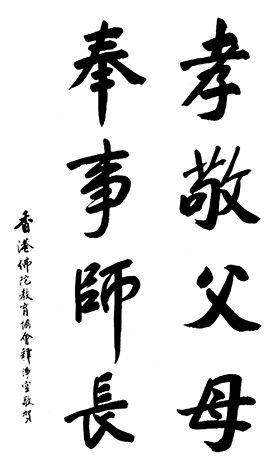 孝敬父母
奉事師長
香港佛陀教育協會釋淨空敬賀